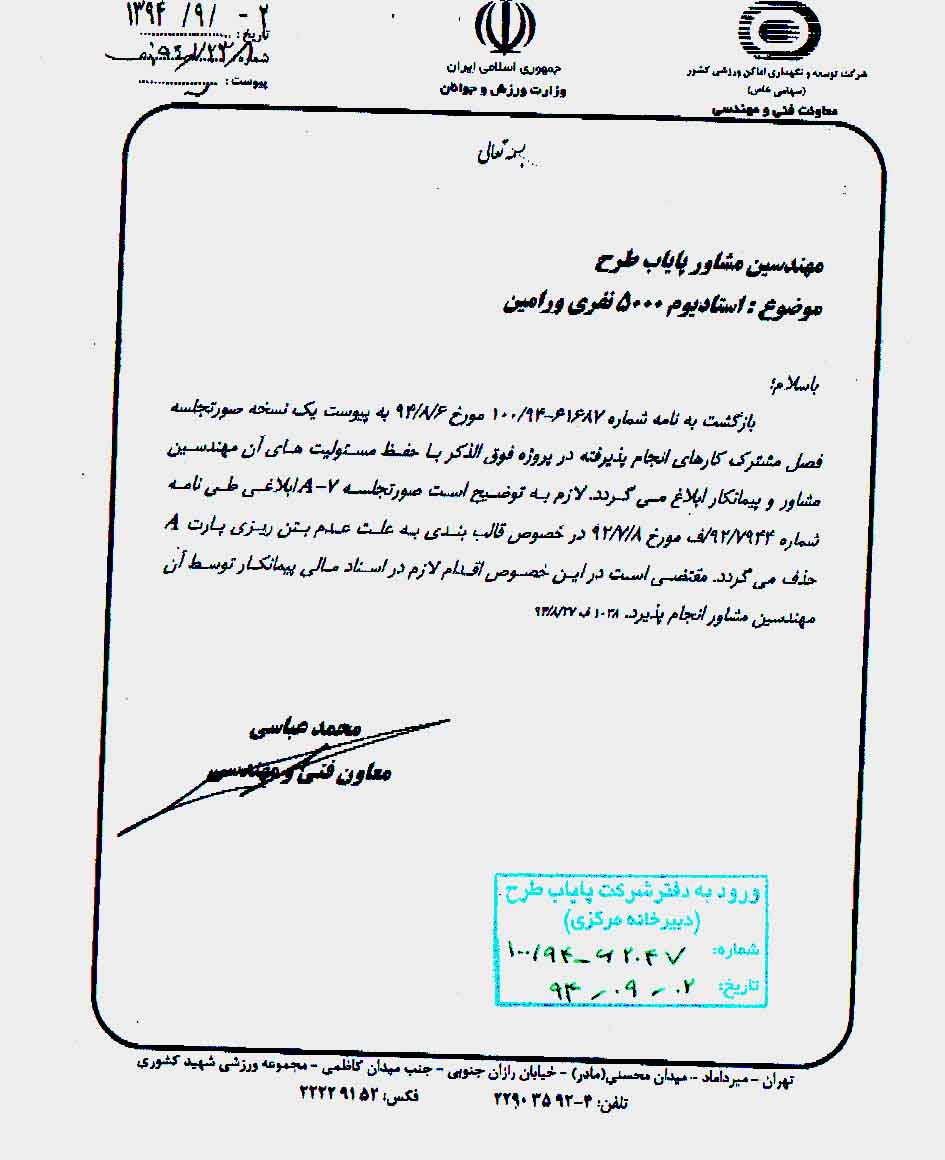 شرکت توسعه و نگهداری اماکن ورزشی کشور
(سهامی خاص)
معاونت فنی و مهندسی
جمهوری اسلامی ایران
وزارت ورزش و جوانان
تاریخ: ۱۳۹۴/۹/۰۲
شماره:
پیوست:
بسمه تعالی
مهندسین مشاور پایاب طرح
موضوع : استادیوم ۵۰۰۰ نفری ورامین
باسلام؛
بازگشت به نامه شماره ۶۱۶۸۷-۱۰۰/۹۴ مورخ ۹۴/۸/۶ به پیوست یک نسخه صورتجلسه
فصل مشترک کارهای انجام پذیرفته در پروژه فوق الذکر با حفظ مسئولیت های آن مهندسین
مشاور و پیمانکار ابلاغ می گردد. لازم به توضیح است صورتجلسه A-۷ ابلاغی طی نامه
شماره ۹۲/۷۹۴۴/ف مورخ ۹۲/۷/۸ در خصوص قالب بندی به علت عدم بتن ریزی پارت A
حذف می گردد. مقتضی است در این خصوص اقدام لازم در اسناد مالی پیمانکار توسط آن
مهندسین مشاور انجام پذیرد.
محمد عباسی
معاون فنی و مهندسی
ورود به دفتر شرکت پایاب طرح
(دبیرخانه مرکزی)
شماره: ۱۰۰/۹۴-۶۲۰۴۷
تاریخ: ۹۴-۰۹-۰۲
تهران - میرداماد - میدان محسنی(مادر) - خیابان رازان جنوبی - جنب میدان کاظمی - مجموعه ورزشی شهید کشوری
تلفن: ۴-۲۲۹۰۳۵۹۲ فکس: ۲۲۲۲۹۱۵۲